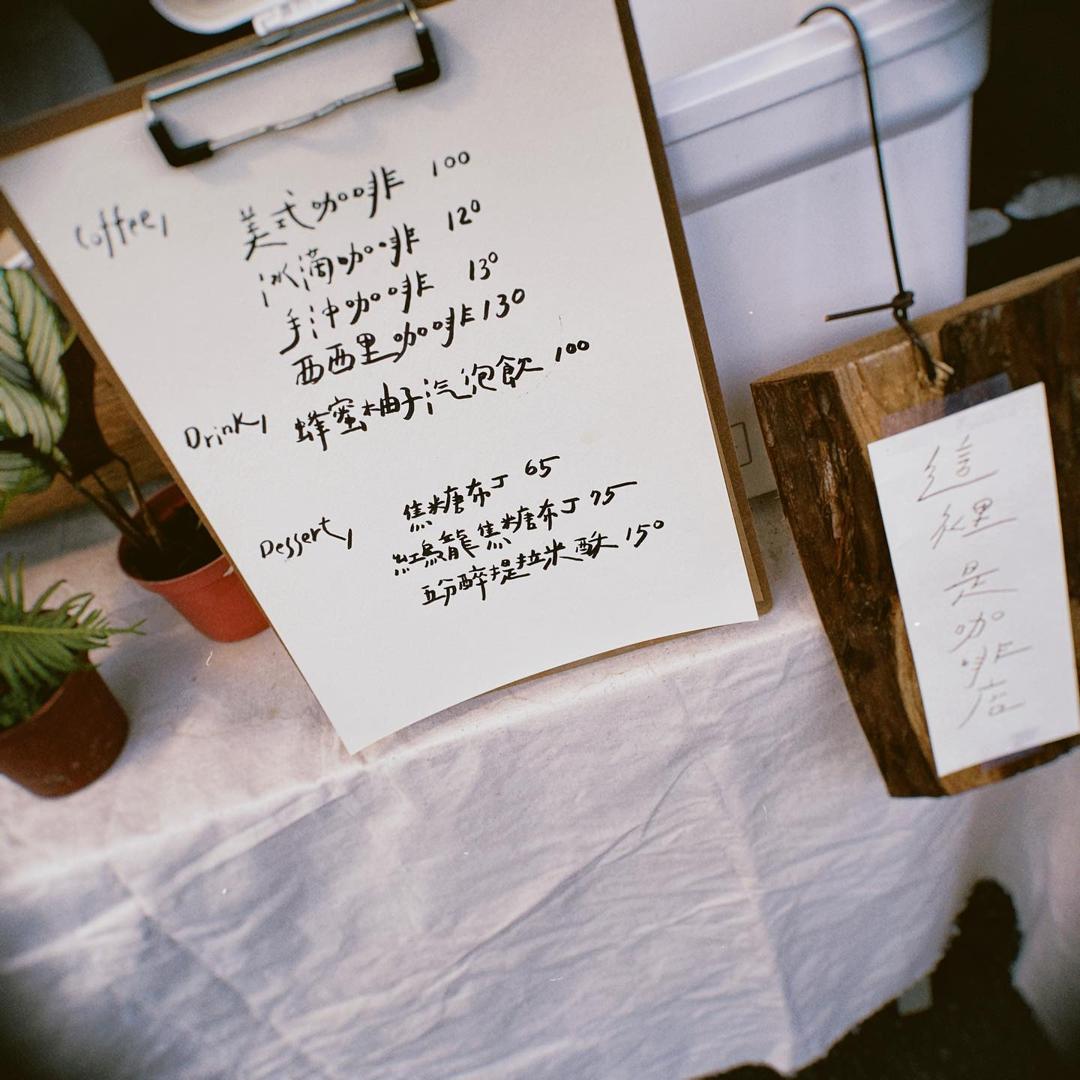 Coffee,
美式咖啡 100
冰滴咖啡 120
手沖咖啡 130
西西里咖啡 130
Drink, 蜂蜜柚子汽泡飲 100
Dessert,
焦糖布丁 65
紅烏龍焦糖布丁 75
五分醉提拉米酥 150
這裡是咖啡店